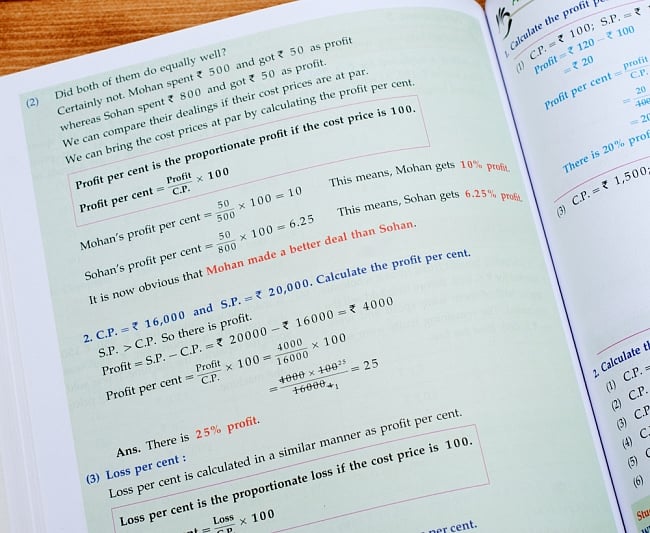 (2) Did both of them do equally well?
Certainly not. Mohan spent ₹ 500 and got ₹ 50 as profit
whereas Sohan spent ₹ 800 and got ₹ 50 as profit.
We can compare their dealings if their cost prices are at par.
We can bring the cost prices at par by calculating the profit per cent.
Profit per cent is the proportionate profit if the cost price is 100.
Profit per cent = Profit/C.P. × 100
Mohan's profit per cent = 50/500 × 100 = 10 This means, Mohan gets 10% profit.
Sohan's profit per cent = 50/800 × 100 = 6.25 This means, Sohan gets 6.25% profit.
It is now obvious that Mohan made a better deal than Sohan.
2. C.P. = ₹ 16,000 and S.P. = ₹ 20,000. Calculate the profit per cent.
S.P. > C.P. So there is profit.
Profit = S.P. – C.P. = ₹ 20000 – ₹ 16000 = ₹ 4000
Profit per cent = Profit/C.P. × 100 = 4000/16000 × 100
= 4000 × 100 25/16000 4 1 = 25
Ans. There is 25% profit.
(3) Loss per cent :
Loss per cent is calculated in a similar manner as profit per cent.
Loss per cent is the proportionate loss if the cost price is 100.
= Loss/C.P. × 100
per cent.
1. Calculate the profit
(1) C.P. = ₹ 100; S.P. = ₹
Profit = ₹ 120 – ₹ 100
= ₹ 20
Profit per cent = Profit/C.P.
= 20/100
= 20
There is 20% prof
(3) C.P. = ₹ 1,500;
2. Calculate th
(1) C.P. =
(2) C.P.
(3) C.P
(4) C.
(5) C
(6)
Stu